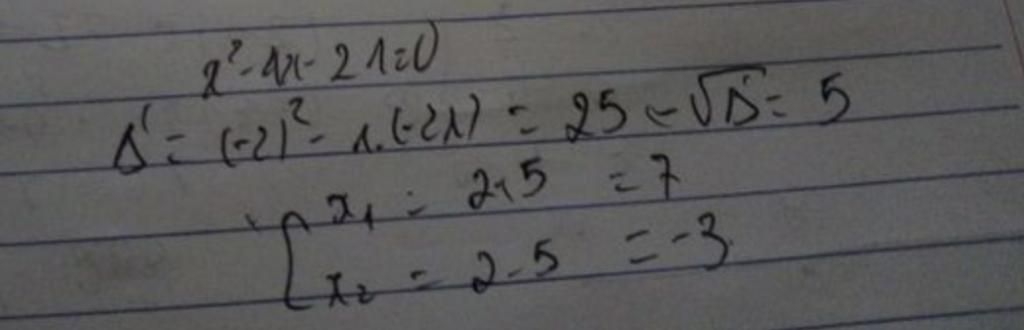 x² - 4x - 21 = 0
Δ' = (-2)² - 1.(-21) = 25 - √Δ' = 5
[ x₁ = 2+5 = 7
x₂ = 2-5 = -3